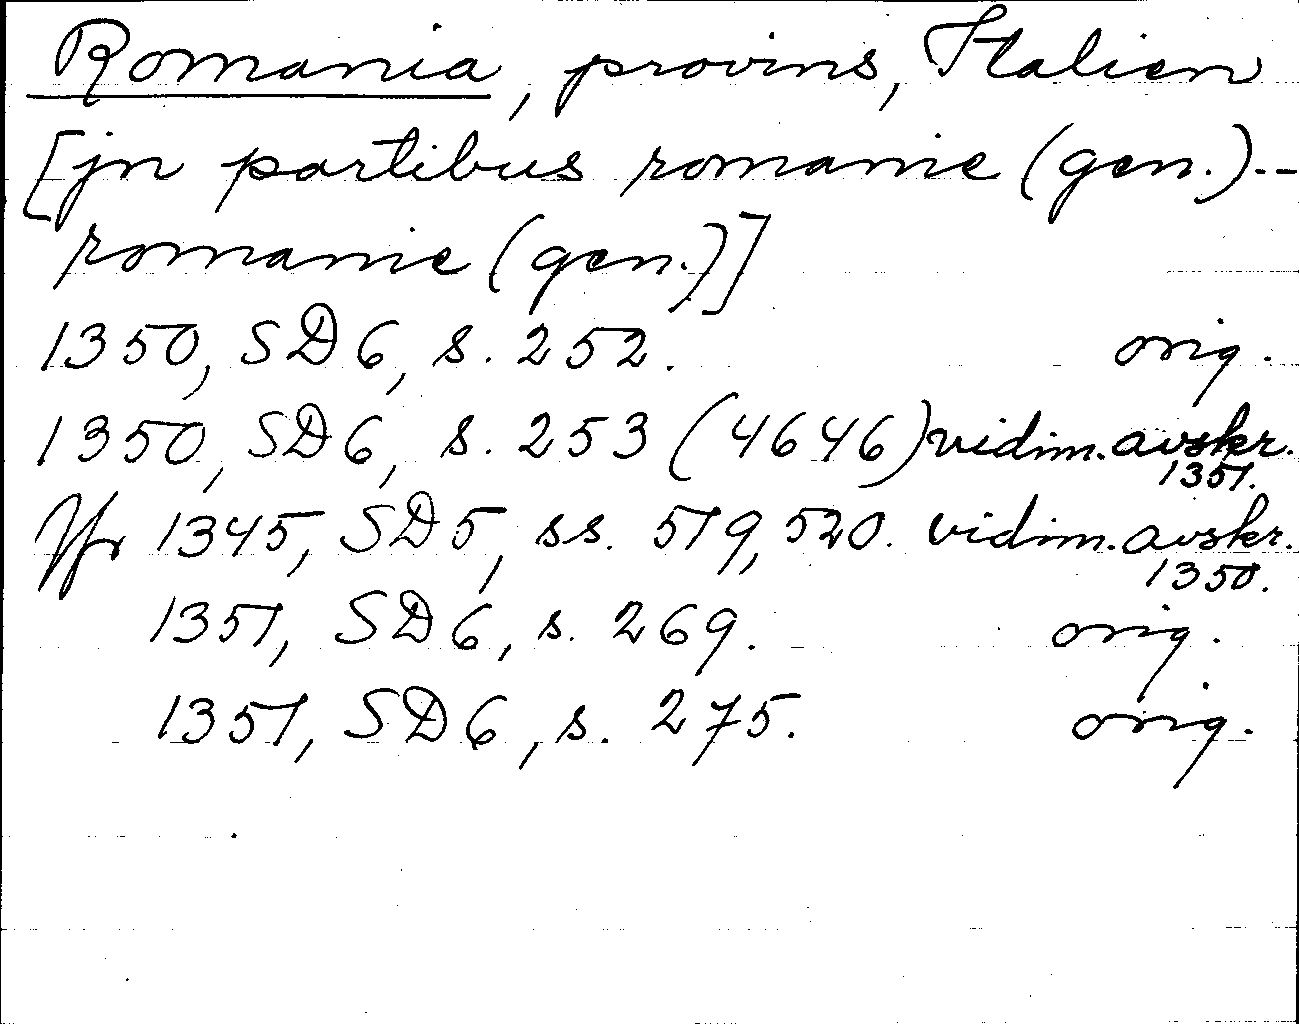 Romania, provins, Italien
[jn partibus romanie (gen.)--
romanie (gen.)]
1350, SD 6, s. 252. orig.
1350, SD 6, s. 253 (4646) vidim. avskr.
1351.
Jfr 1345, SD 5, ss. 519, 520. vidim. avskr.
1350.
1351, SD 6, s. 269. orig.
1351, SD 6, s. 275. orig.